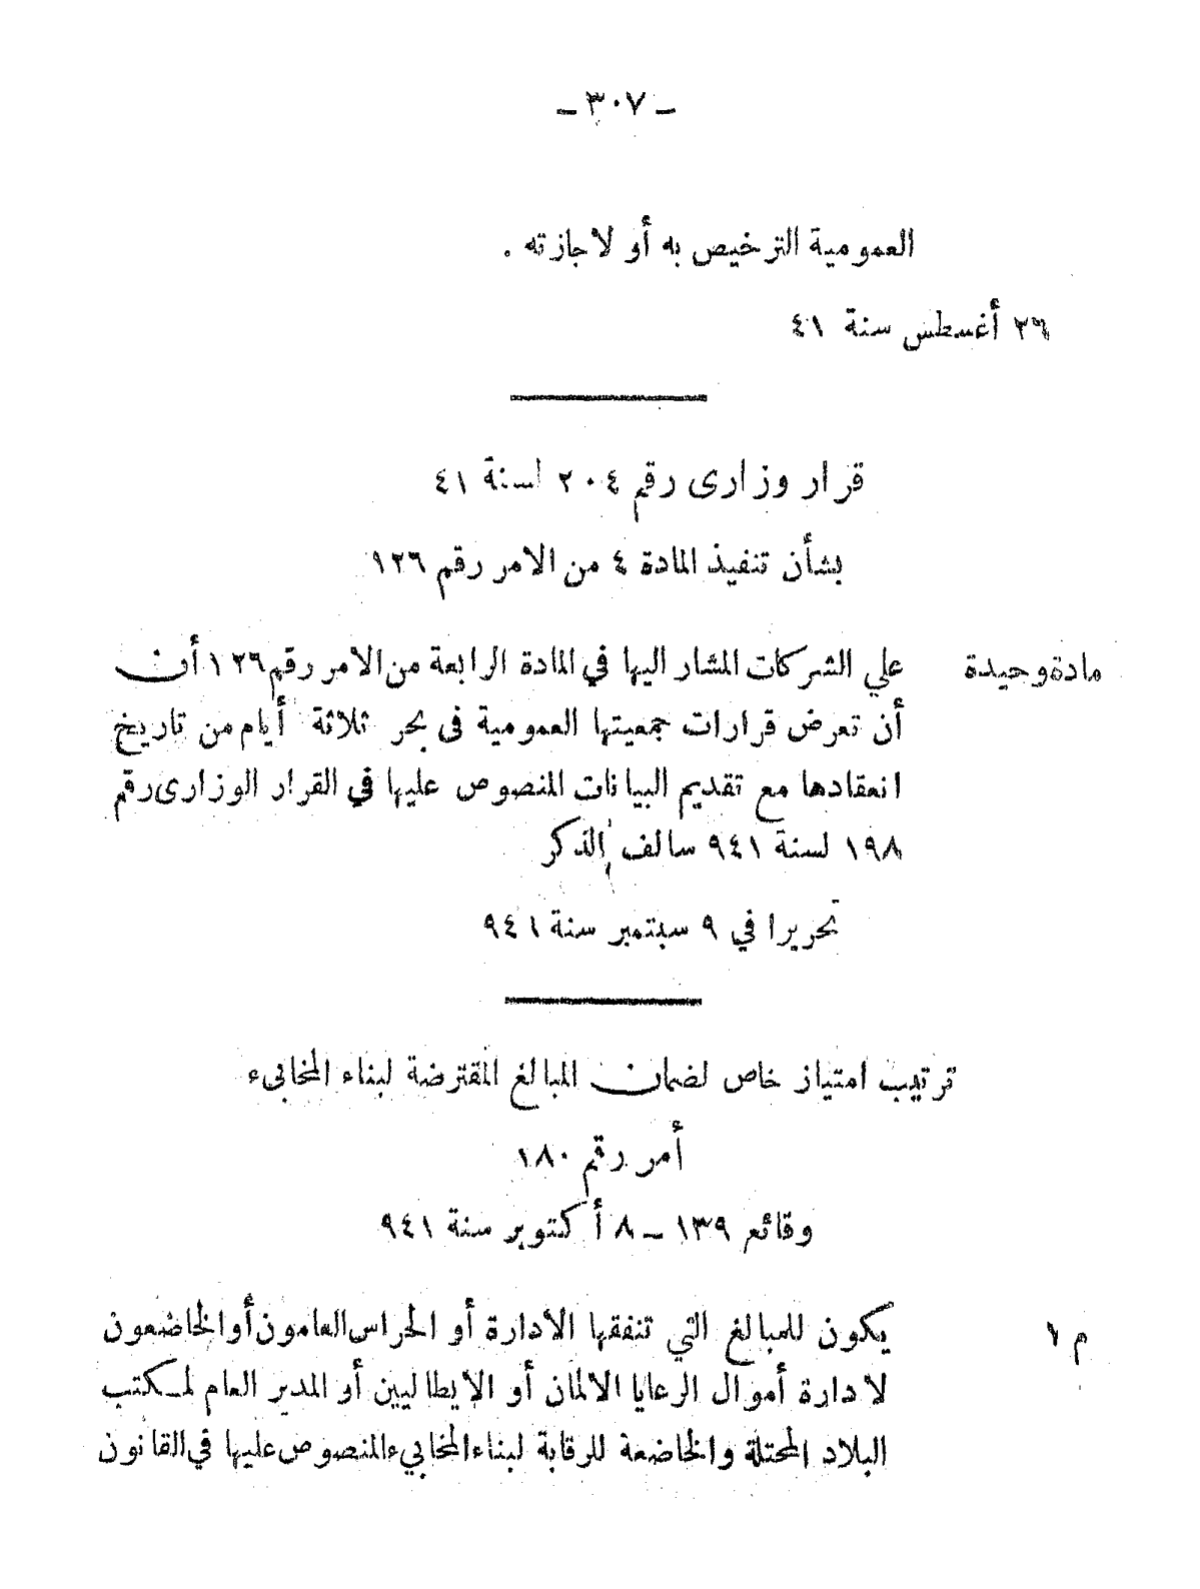 – ٣٠٧ –
العمومية الترخيص به أو لاجازته .
٢٦ أغسطس سنة ٤١
قرار وزارى رقم ٢٠٤ لسنة ٤١
بشأن تنفيذ المادة ٤ من الامر رقم ١٢٦
مادة وحيدة علي الشركات المشار اليها في المادة الرابعة من الامر رقم ١٢٦ أن
أن تعرض قرارات جمعيتها العمومية فى بحر ثلاثة أيام من تاريخ
انعقادها مع تقديم البيانات المنصوص عليها في القرار الوزارى رقم
١٩٨ لسنة ٩٤١ سالف الذكر
تحريرا في ٩ سبتمبر سنة ٩٤١
ترتيب امتياز خاص لضمان المبالغ المقترضة لبناء المخابىء
أمر رقم ١٨٠
وقائع ١٣٩ – ٨ أكتوبر سنة ٩٤١
م ١ يكون للمبالغ التي تنفقها الادارة أو الحراس العامون أو الخاضعون
لادارة أموال الرعايا الالمان أو الايطاليين أو المدير العام لمكتب
البلاد المحتلة والخاضعة للرقابة لبناء المخابيء المنصوص عليها في القانون